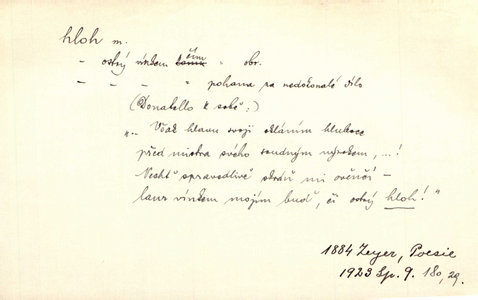 hloh m.
- ostrý vínkem čím - obr.
- - - " pohana za nedokonalé dílo
(Donatello k sobě:)
"- Však hlavu svoji skláním hluboce
před mistra svého soudným výrokem, ...!
Nechť spravedlivě skráň mi ověnčí -
laur vínkem mojím buď, či ostrý hloh!"
1884 Zeyer, Poesie
1923 Sp. 9. 180, 29.